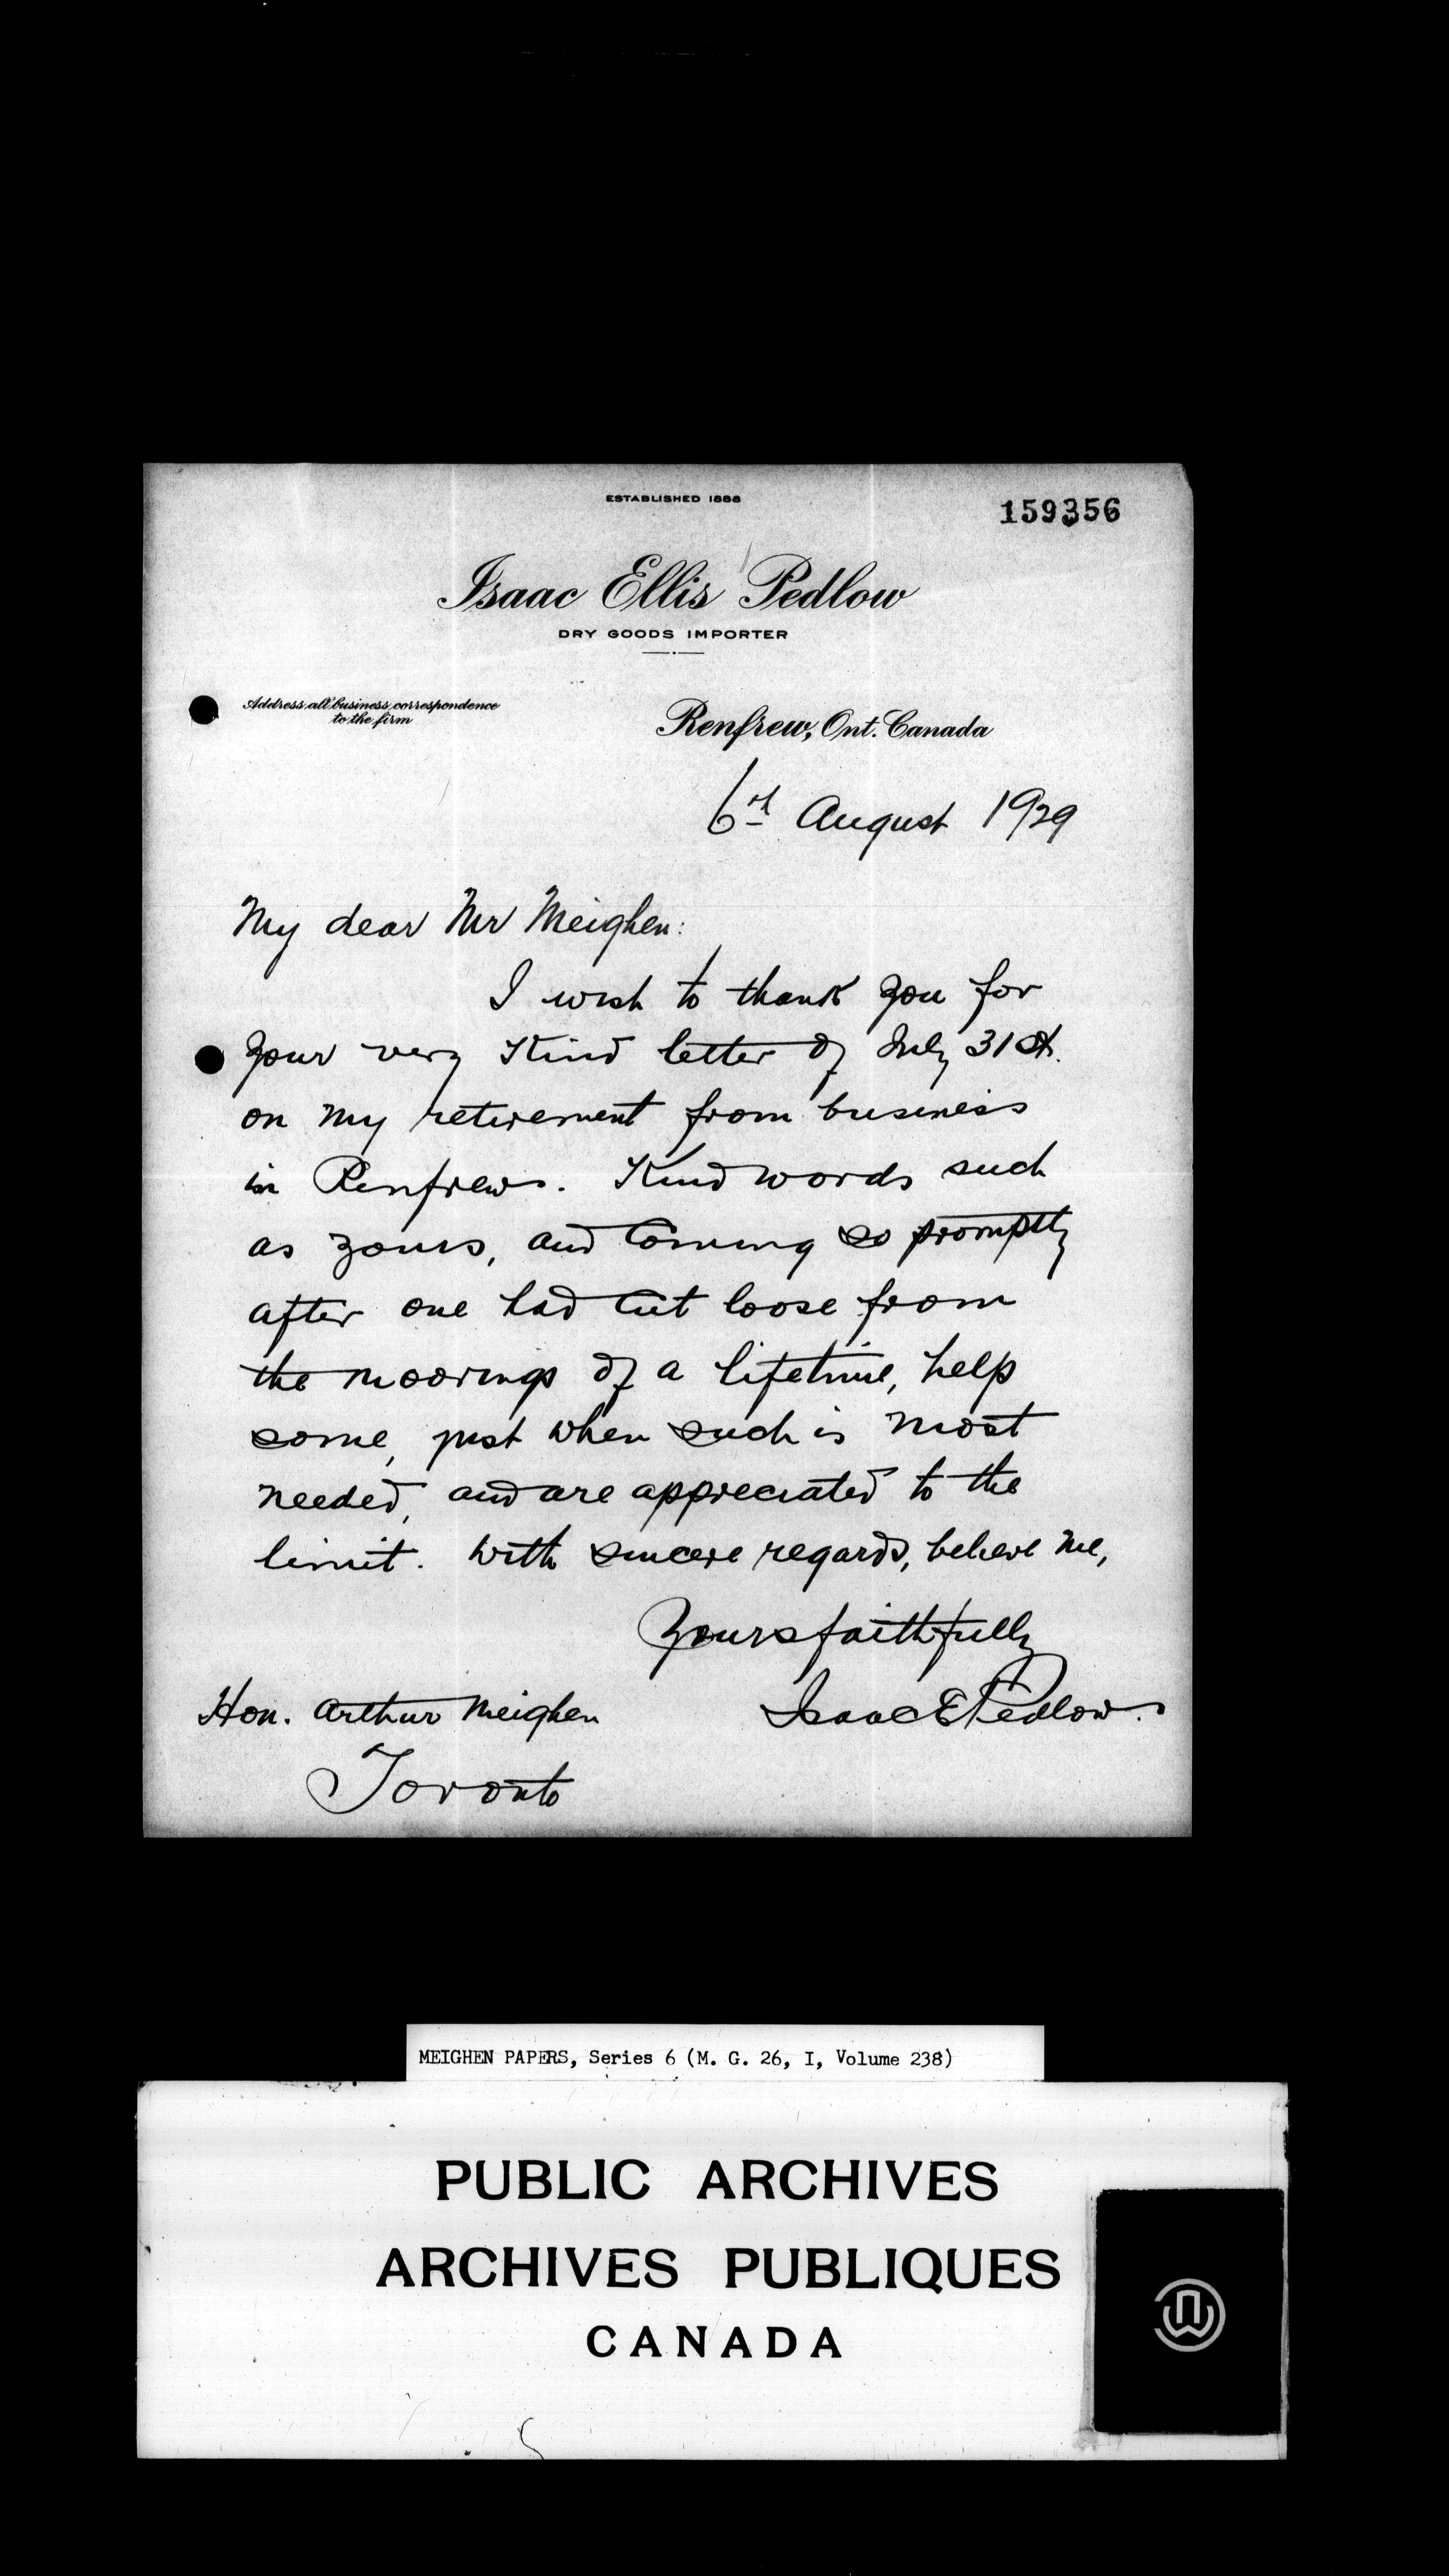 ESTABLISHED 1888
159356
Isaac Ellis Pedlow
DRY GOODS IMPORTER
Address all business correspondence
to the firm
Renfrew, Ont. Canada
6th August 1929
My dear Mr Meighen:
I wish to thank you for
your very kind letter of July 31st.
on my retirement from business
in Renfrew. Kind words such
as yours, and coming so promptly
after one had cut loose from
the moorings of a lifetime, help
some, just when such is most
needed, and are appreciated to the
limit. With sincere regards, believe me,
Yours faithfully
Isaac E Pedlow.
Hon. Arthur Meighen
Toronto
MEIGHEN PAPERS, Series 6 (M. G. 26, I, Volume 238)
PUBLIC ARCHIVES
ARCHIVES PUBLIQUES
CANADA